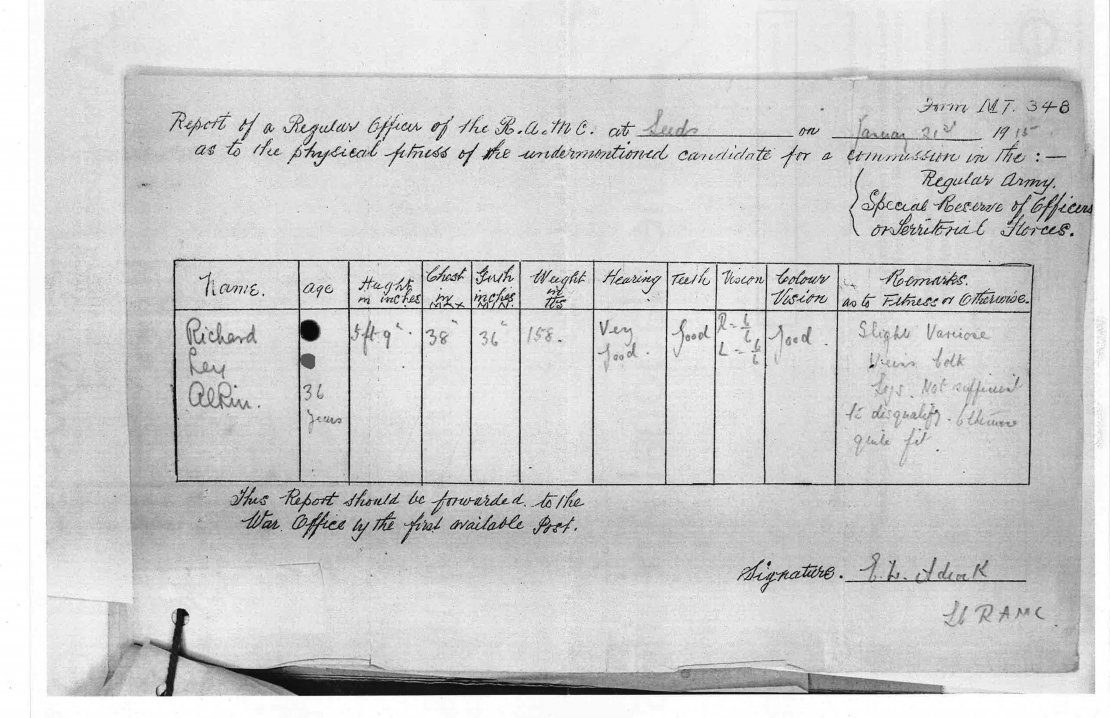 Form M.T. 348
Report of a Regular Officer of the R.A.M.C. at Leeds on January 21st 1915
as to the physical fitness of the undermentioned candidate for a commission in the :—
Regular Army.
Special Reserve of Officers
or Territorial Forces.
Name. age Height in inches Chest in Max Girth inches Min. Weight in lbs Hearing Teeth Vision Colour Vision Remarks. as to Fitness or Otherwise.
Richard 5 ft. 9" 38" 36" 158. Very good. Good R = 6/6 Good. Slight Varicose
Ley L = 6/6 Veins both
Atkin. 36 Legs. Not sufficient
years to disqualify. Otherwise
quite fit.
This Report should be forwarded to the
War Office by the first available Post.
Signature.
Lt RAMC.